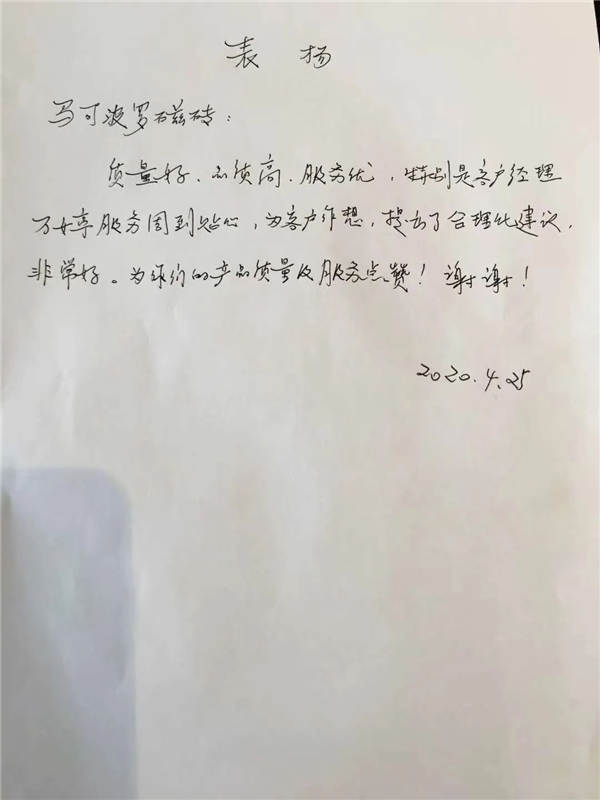 表扬
马可波罗磁砖：
质量好、品质高、服务优，特别是客户经理
万女享服务周到贴心，为客户作想，提出了合理化建议，
非常好。为你们的产品质量及服务点赞！谢谢！
2020.4.25